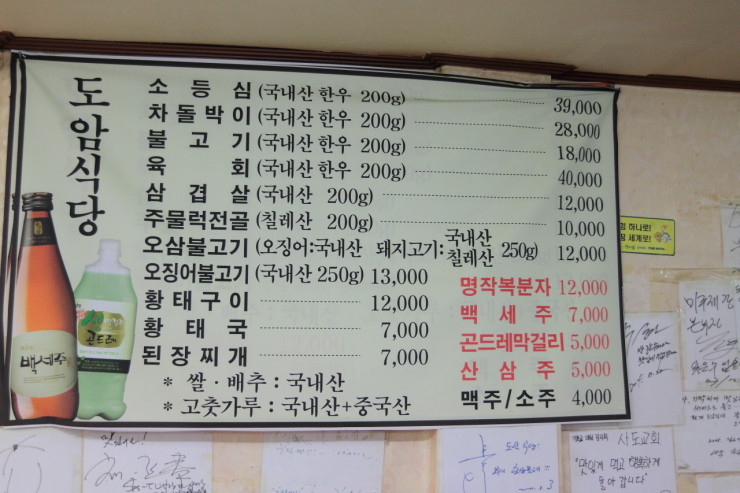 도암식당
소 등 심 (국내산 한우 200g) 39,000
차돌박이 (국내산 한우 200g) 28,000
불 고 기 (국내산 한우 200g) 18,000
육 회 (국내산 한우 200g) 40,000
삼 겹 살 (국내산 200g) 12,000
주물럭전골 (칠레산 200g) 10,000
오삼불고기 (오징어:국내산 돼지고기:국내산 칠레산 250g) 12,000
오징어불고기 (국내산 250g) 13,000
황태구이 12,000
황 태 국 7,000
된장찌개 7,000
* 쌀·배추 : 국내산
* 고춧가루 : 국내산+중국산
명작복분자 12,000
백 세 주 7,000
곤드레막걸리 5,000
산 삼 주 5,000
맥주/소주 4,000
백세주
곤드레
하나로!
세계로!
사도교회
"맛있게 먹고 행복하게
돌아갑니다"